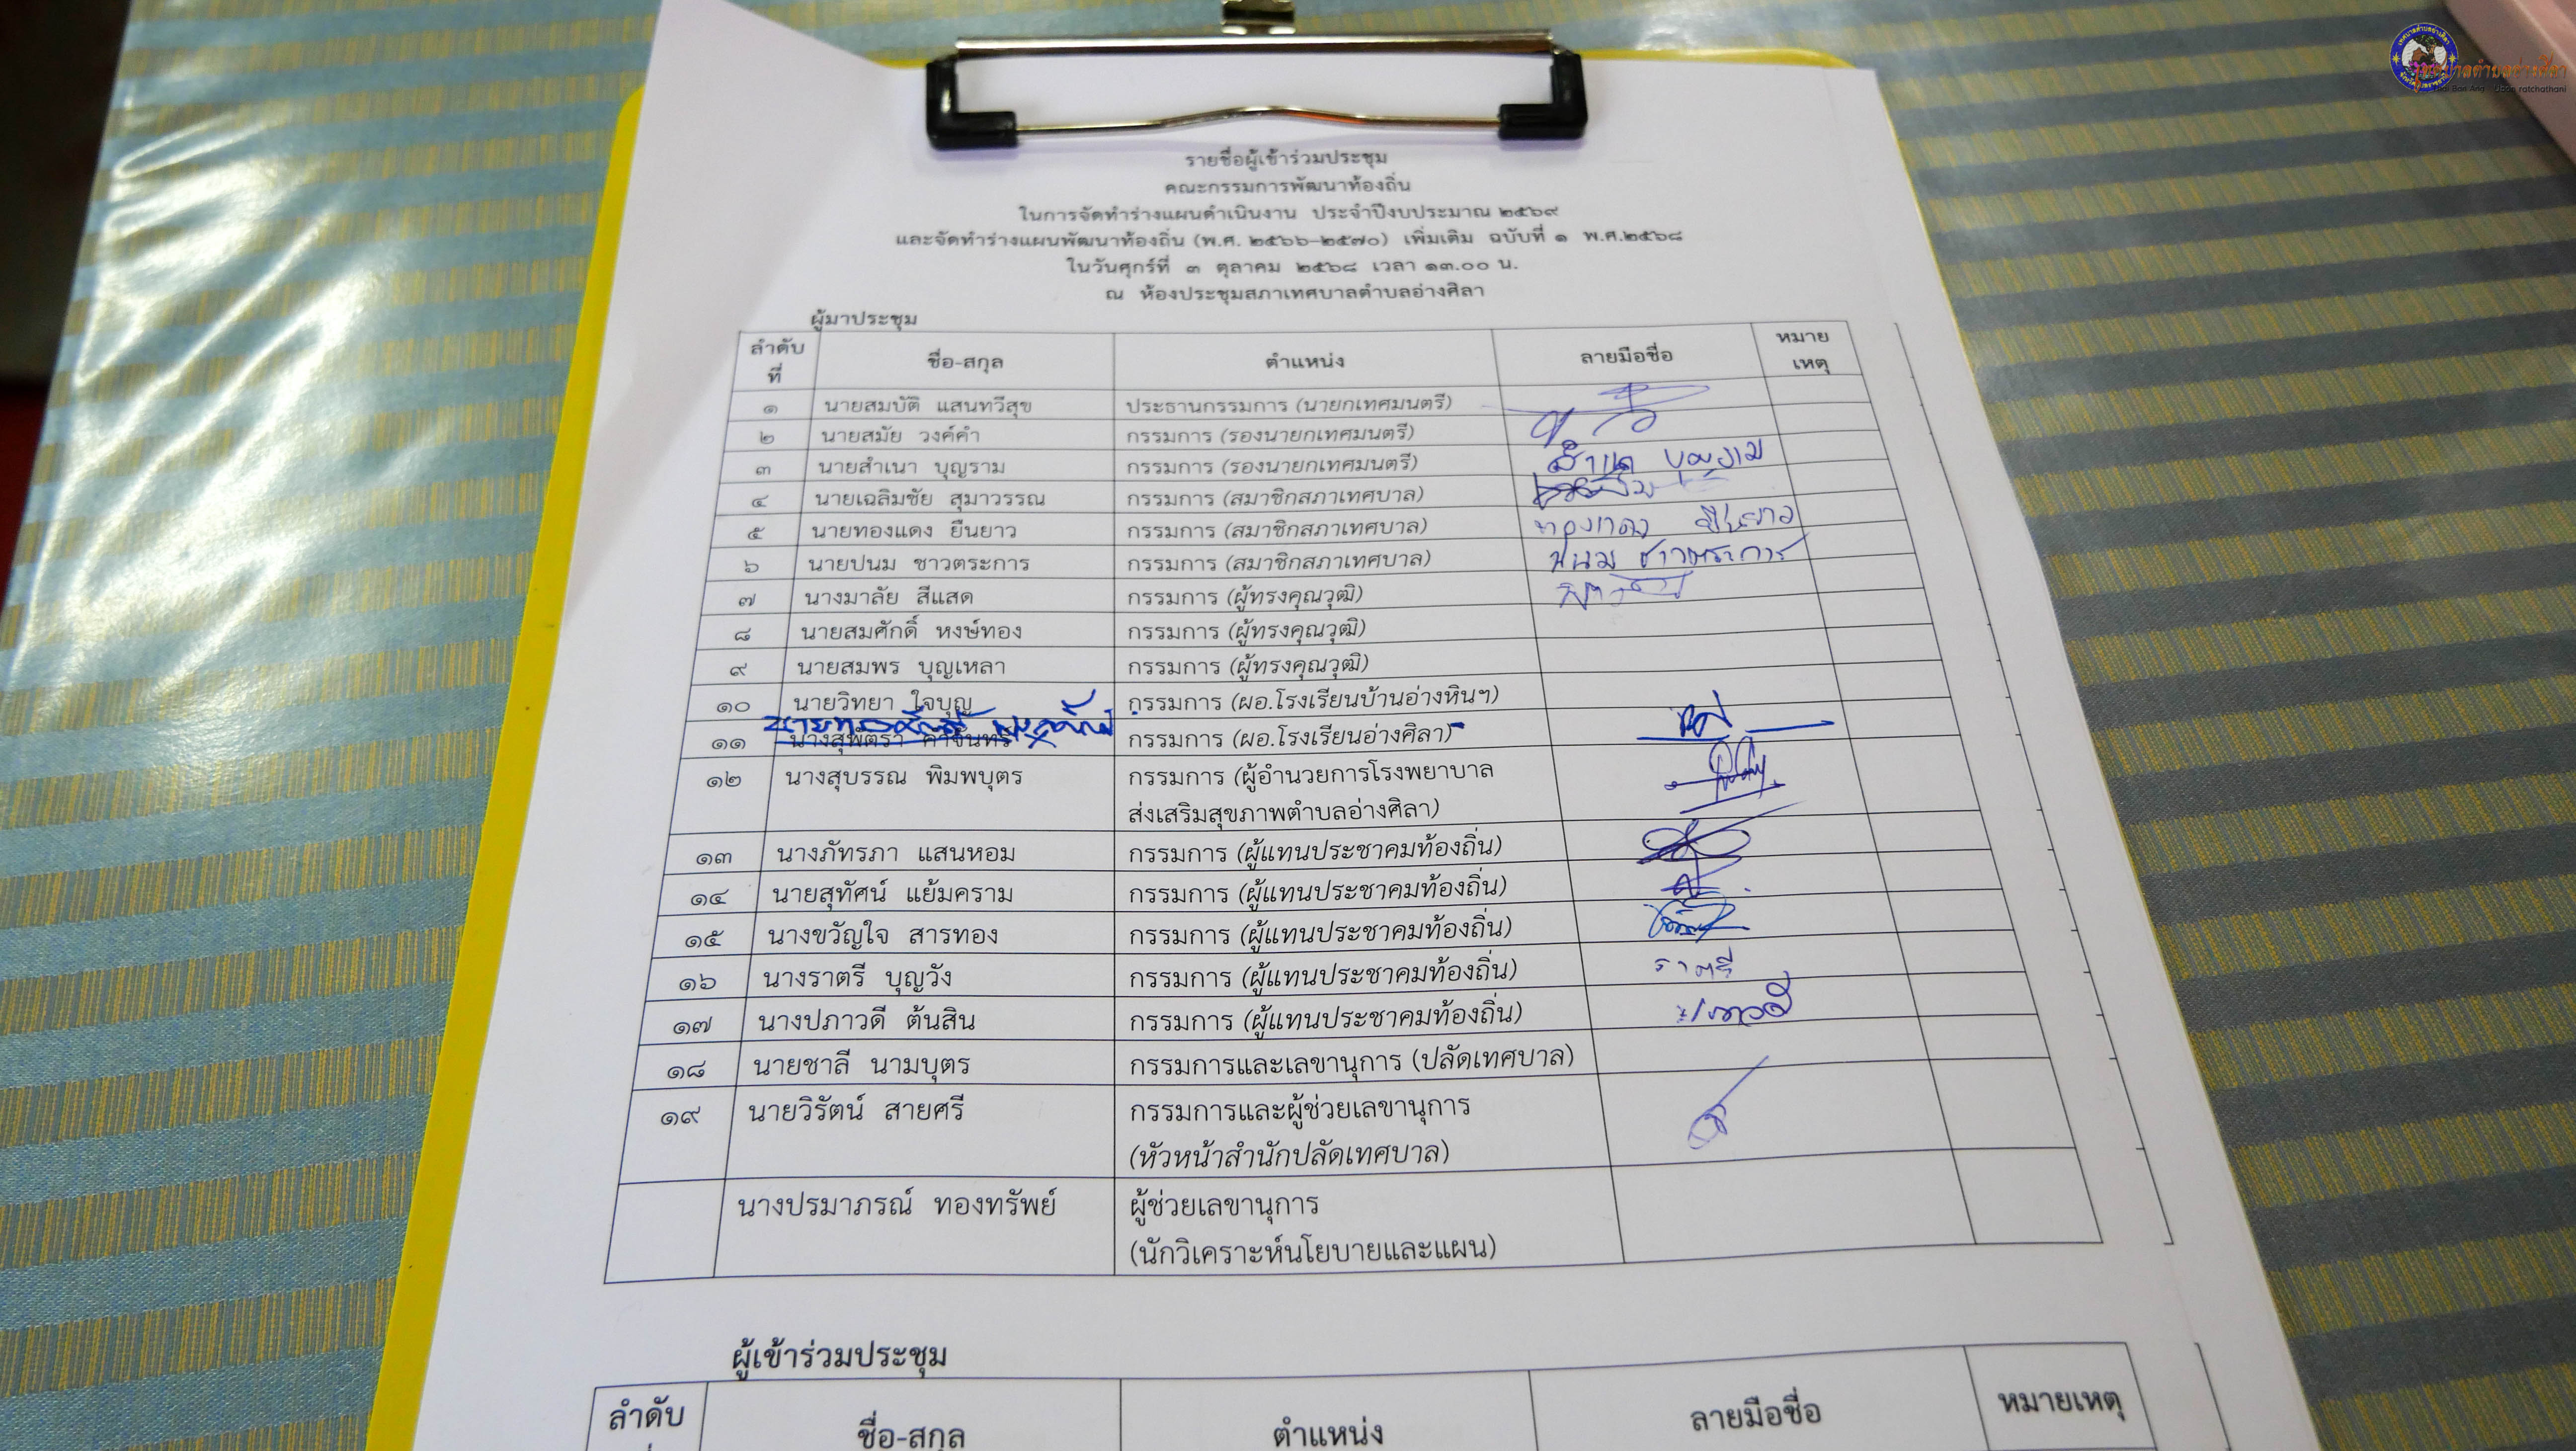 เทศบาลตำบลอ่างศิลา
Ubon ratchathani
รายชื่อผู้เข้าร่วมประชุม
คณะกรรมการพัฒนาท้องถิ่น
ในการจัดทำร่างแผนดำเนินงาน ประจำปีงบประมาณ ๒๕๖๙
และจัดทำร่างแผนพัฒนาท้องถิ่น (พ.ศ. ๒๕๖๖-๒๕๗๐) เพิ่มเติม ฉบับที่ ๑ พ.ศ.๒๕๖๘
ในวันศุกร์ที่ ๓ ตุลาคม ๒๕๖๘ เวลา ๑๓.๐๐ น.
ณ ห้องประชุมสภาเทศบาลตำบลอ่างศิลา
ผู้มาประชุม
ลำดับที่ ชื่อ-สกุล ตำแหน่ง ลายมือชื่อ หมายเหตุ
๑ นายสมบัติ แสนทวีสุข ประธานกรรมการ (นายกเทศมนตรี)
๒ นายสมัย วงค์คำ กรรมการ (รองนายกเทศมนตรี)
๓ นายสำเนา บุญราม กรรมการ (รองนายกเทศมนตรี) สำเนา บุญราม
๔ นายเฉลิมชัย สุมาวรรณ กรรมการ (สมาชิกสภาเทศบาล)
๕ นายทองแดง ยืนยาว กรรมการ (สมาชิกสภาเทศบาล) ทองแดง ยืนยาว
๖ นายปนม ชาวตระการ กรรมการ (สมาชิกสภาเทศบาล) ปนม ชาวตระการ
๗ นางมาลัย สีแสด กรรมการ (ผู้ทรงคุณวุฒิ)
๘ นายสมศักดิ์ หงษ์ทอง กรรมการ (ผู้ทรงคุณวุฒิ)
๙ นายสมพร บุญเหลา กรรมการ (ผู้ทรงคุณวุฒิ)
๑๐ นายวิทยา ใจบุญ กรรมการ (ผอ.โรงเรียนบ้านอ่างหินฯ)
๑๑ นางสุพัตรา คำจันทร์ กรรมการ (ผอ.โรงเรียนอ่างศิลา)
๑๒ นางสุบรรณ พิมพบุตร กรรมการ (ผู้อำนวยการโรงพยาบาล
ส่งเสริมสุขภาพตำบลอ่างศิลา)
๑๓ นางภัทรภา แสนหอม กรรมการ (ผู้แทนประชาคมท้องถิ่น)
๑๔ นายสุทัศน์ แย้มคราม กรรมการ (ผู้แทนประชาคมท้องถิ่น)
๑๕ นางขวัญใจ สารทอง กรรมการ (ผู้แทนประชาคมท้องถิ่น)
๑๖ นางราตรี บุญวัง กรรมการ (ผู้แทนประชาคมท้องถิ่น) ราตรี
๑๗ นางปภาวดี ต้นสิน กรรมการ (ผู้แทนประชาคมท้องถิ่น) ปภาวดี
๑๘ นายชาลี นามบุตร กรรมการและเลขานุการ (ปลัดเทศบาล)
๑๙ นายวิรัตน์ สายศรี กรรมการและผู้ช่วยเลขานุการ
(หัวหน้าสำนักปลัดเทศบาล)
นางปรมาภรณ์ ทองทรัพย์ ผู้ช่วยเลขานุการ
(นักวิเคราะห์นโยบายและแผน)
ผู้เข้าร่วมประชุม
ลำดับ ชื่อ-สกุล ตำแหน่ง ลายมือชื่อ หมายเหตุ